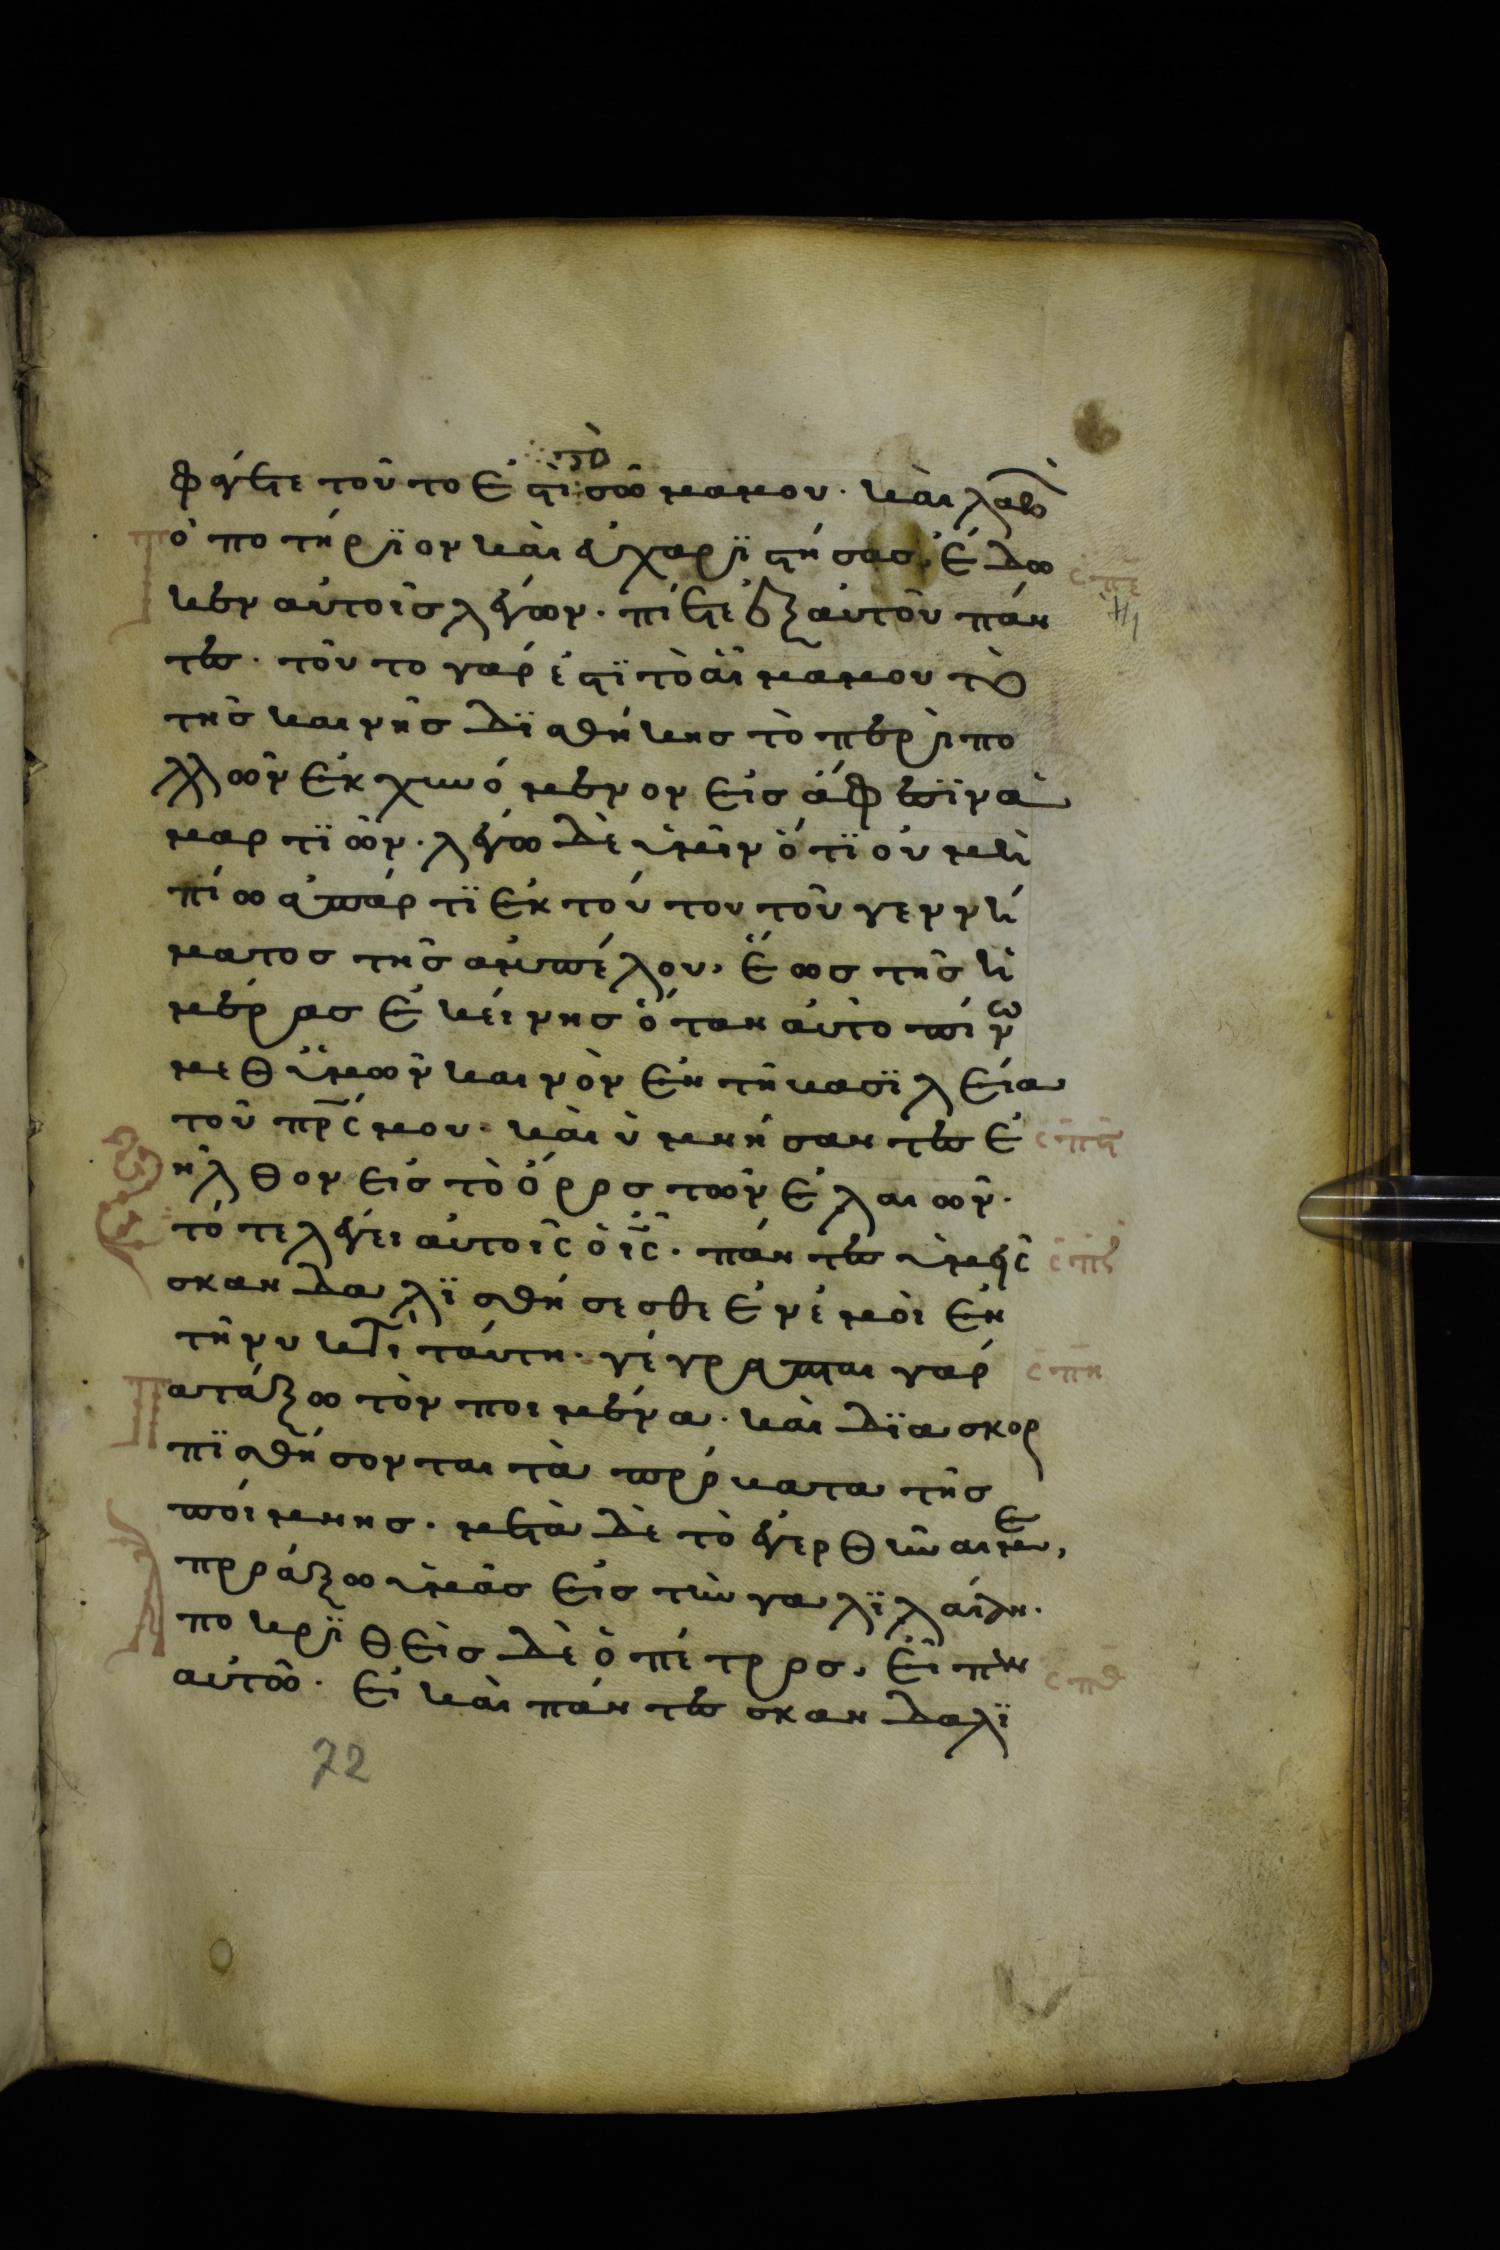 φάγετε τοῦτο ἐστὶ τὸ σῶμα μου· καὶ λαβὼν
τὸ ποτήριον καὶ εὐχαριστήσας, ἔδω
κεν αὐτοῖς λέγων· πίετε ἐξ αὐτοῦ πάν
τες· τοῦτο γάρ ἐστϊ τὸ αἷμα μου τὸ
τῆς καινῆς δϊαθήκης τὸ περὶ πο
λλῶν ἐκχυνόμενον εἰς ἄφεσϊν ἁ
μαρτϊῶν· λέγω δὲ ὑμῖν ὅτϊ οὐ μὴ
πίω ἀπάρτϊ ἐκ τούτου τοῦ γεννή
ματος τῆς ἀμπέλου, ἕως τῆς ἡ
μέρας ἐκείνης ὅταν αὐτὸ πίνω
μεθ ὑμῶν καινὸν ἐν τῆ βασϊλεία
τοῦ πρς μου· καὶ ὑμνήσαντες ἐ
ξῆλθον εἰς τὸ ὄρος τῶν ἐλαιῶν·
τότε λέγει αὐτοῖς ὁ ις· πάντες ὑμεῖς
σκανδαλϊσθήσεσθε ἐν ἐμοὶ ἐν
τῆ νυκτὶ ταύτη· γέγραπται γάρ
πατάξω τὸν ποιμένα· καὶ δϊασκορ
πϊσθήσονται τὰ πρόβατα τῆς
ποίμνης· μετὰ δὲ τὸ ἐγερθῆναι με,
προάξω ὑμᾶς εἰς τὴν γαλϊλαίαν·
ἀποκριθεὶς δὲ ὁ πέτρος, εἶπεν
αὐτῶ· εἰ καὶ πάντες σκανδαλϊ
σπε
σπς
σπζ
σπη
σπθ
72